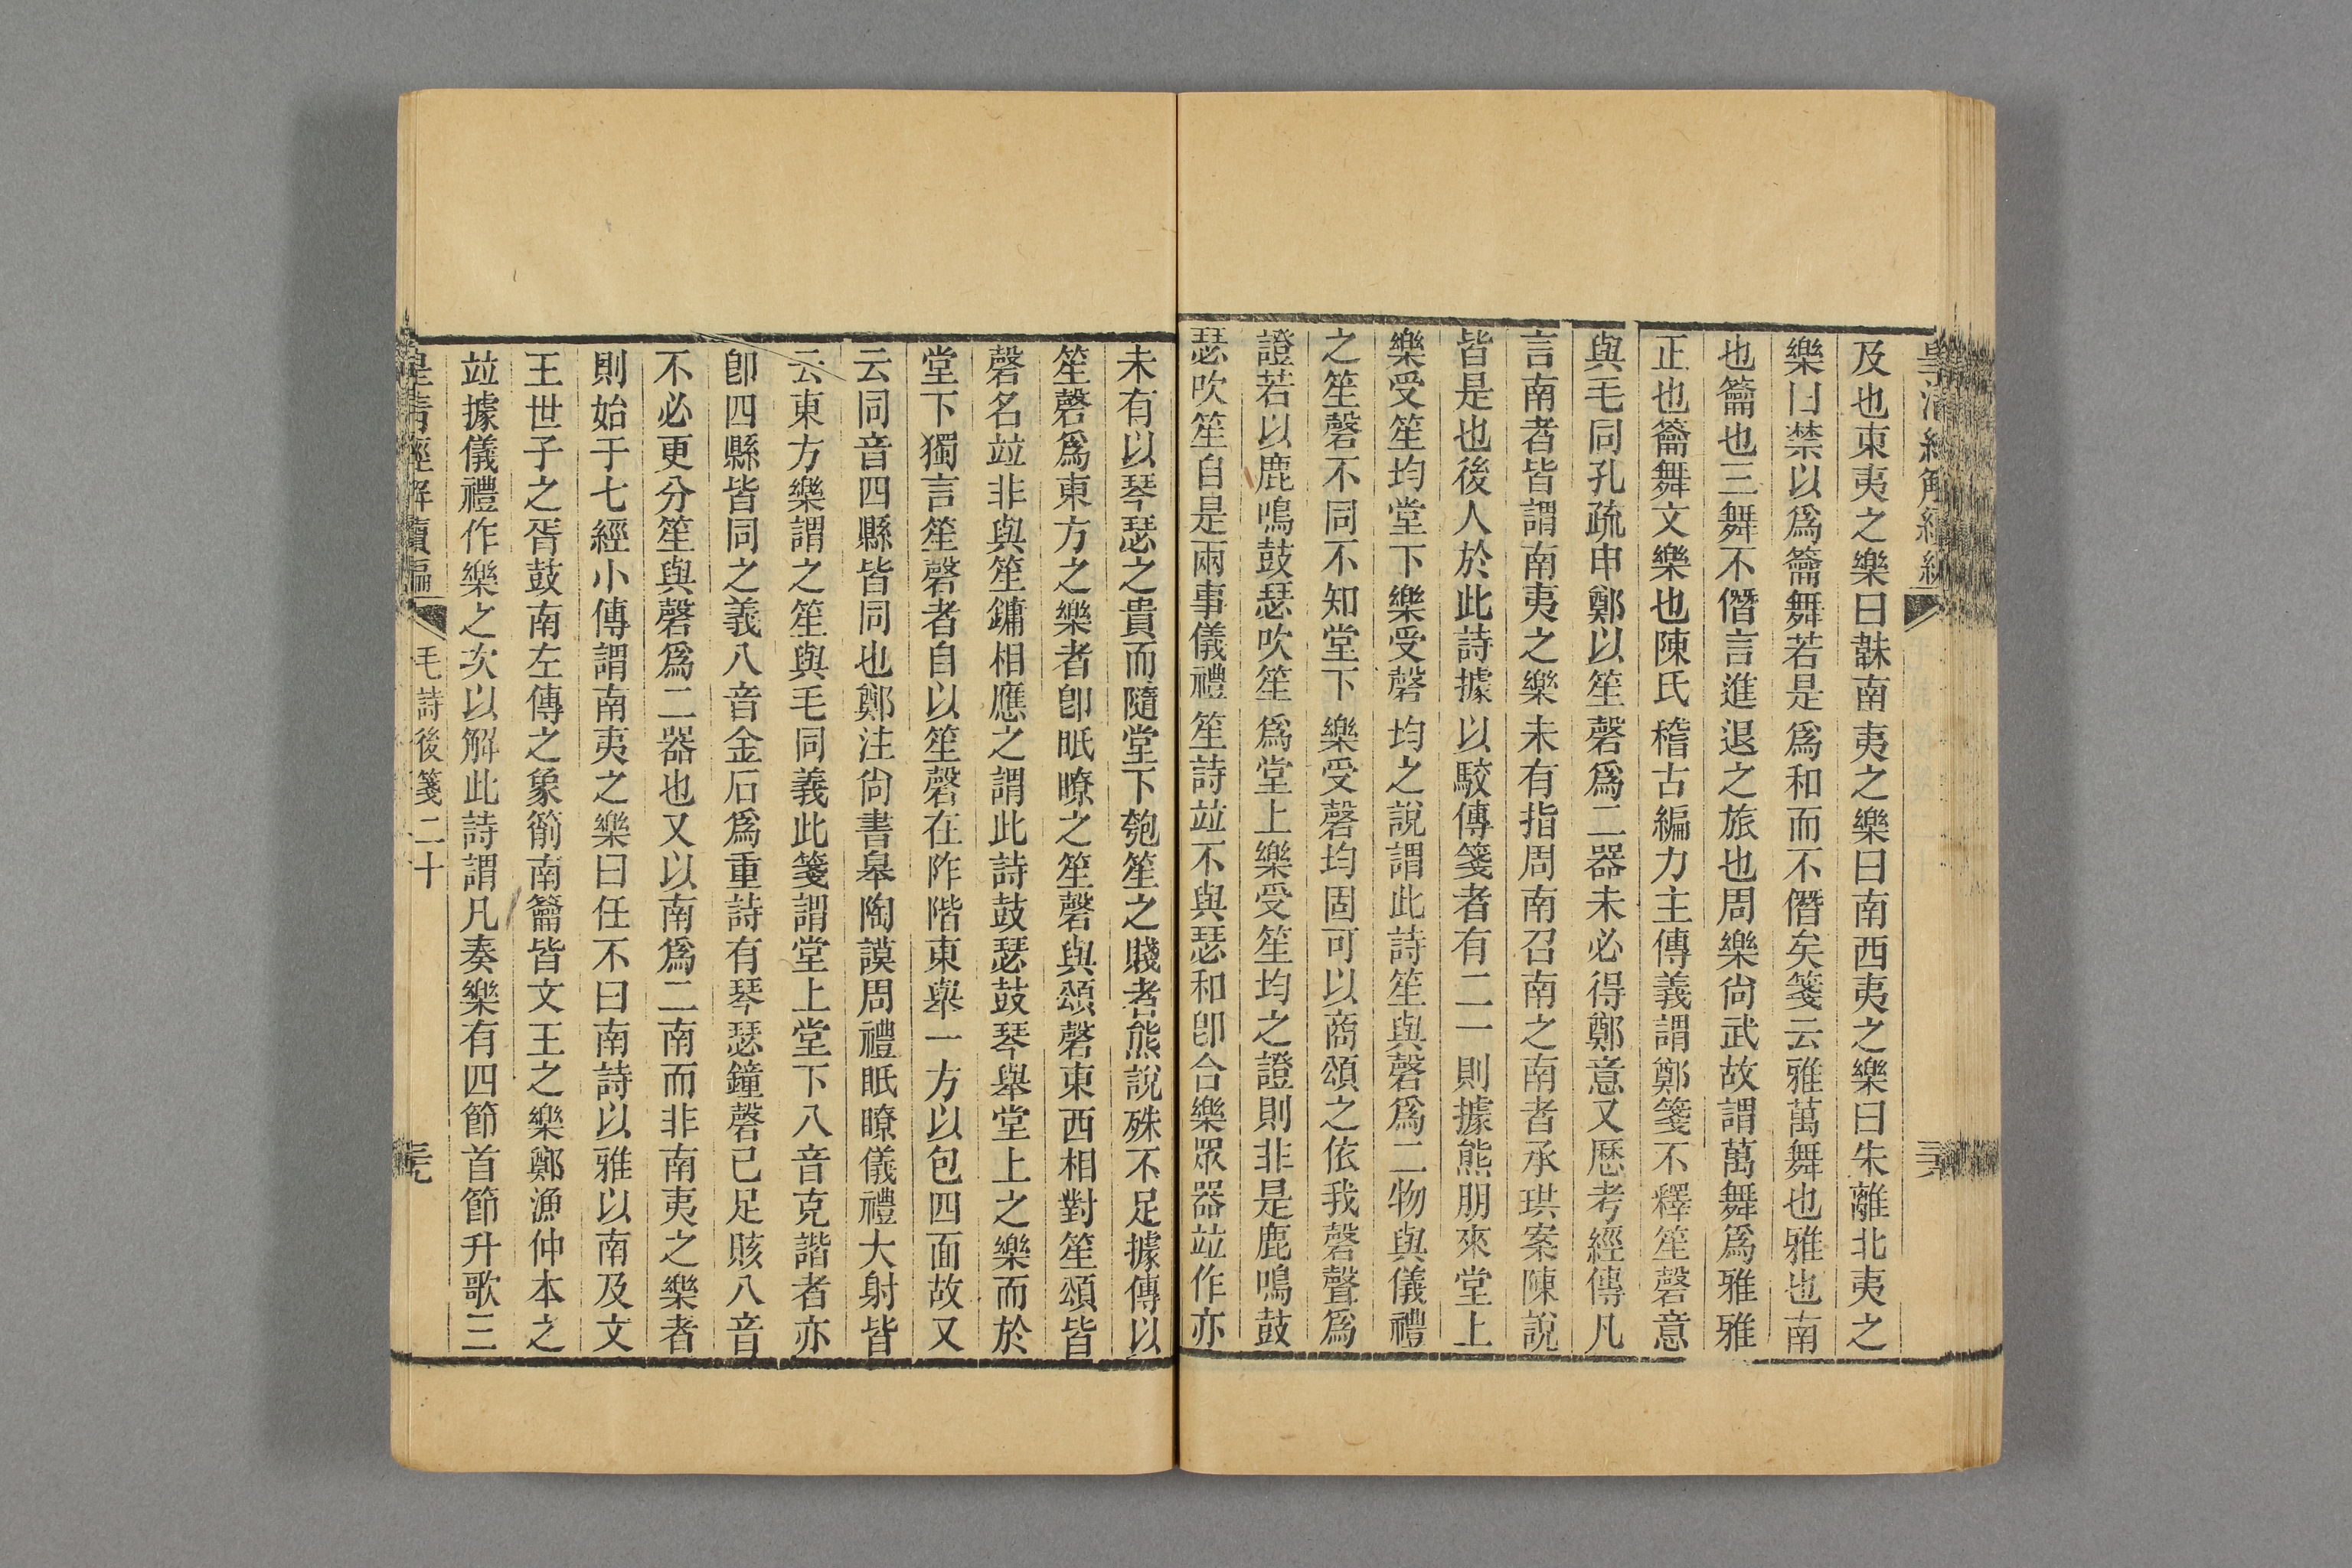 及也東夷之樂曰韎南夷之樂曰南西夷之樂曰朱離北夷之
樂曰禁以爲籥舞若是爲和而不僭矣箋云雅萬舞也雅也南
也籥也三舞不僭言進退之旅也周樂尙武故謂萬舞爲雅雅
正也籥舞文樂也陳氏稽古編力主傳義謂鄭箋不釋笙磬意
與毛同孔疏申鄭以笙磬爲二器未必得鄭意又歷考經傳凡
言南者皆謂南夷之樂未有指周南召南之南者承珙案陳說
皆是也後人於此詩據以駮傳箋者有二一則據熊朋來堂上
樂受笙均堂下樂受磬均之說謂此詩笙與磬爲二物與儀禮
之笙磬不同不知堂下樂受磬均固可以商頌之依我磬聲爲
證若以鹿鳴鼓瑟吹笙爲堂上樂受笙均之證則非是鹿鳴鼓
瑟吹笙自是兩事儀禮笙詩竝不與瑟和卽合樂眾器竝作亦
未有以琴瑟之貴而隨堂下匏笙之賤者熊說殊不足據傳以
笙磬爲東方之樂者卽眂瞭之笙磬與頌磬東西相對笙頌皆
磬名竝非與笙鏞相應之謂此詩鼓瑟鼓琴舉堂上之樂而於
堂下獨言笙磬者自以笙磬在阼階東舉一方以包四面故又
云同音四縣皆同也鄭注尙書皋陶謨周禮眂瞭儀禮大射皆
云東方樂謂之笙與毛同義此箋謂堂上堂下八音克諧者亦
卽四縣皆同之義八音金石爲重詩有琴瑟鐘磬已足賅八音
不必更分笙與磬爲二器也又以南爲二南而非南夷之樂者
則始于七經小傳謂南夷之樂曰任不曰南詩以雅以南及文
王世子之胥鼓南左傳之象箾南籥皆文王之樂鄭漁仲本之
竝據儀禮作樂之次以解此詩謂凡奏樂有四節首節升歌三
皇清經解續編 毛詩後箋二十 三九